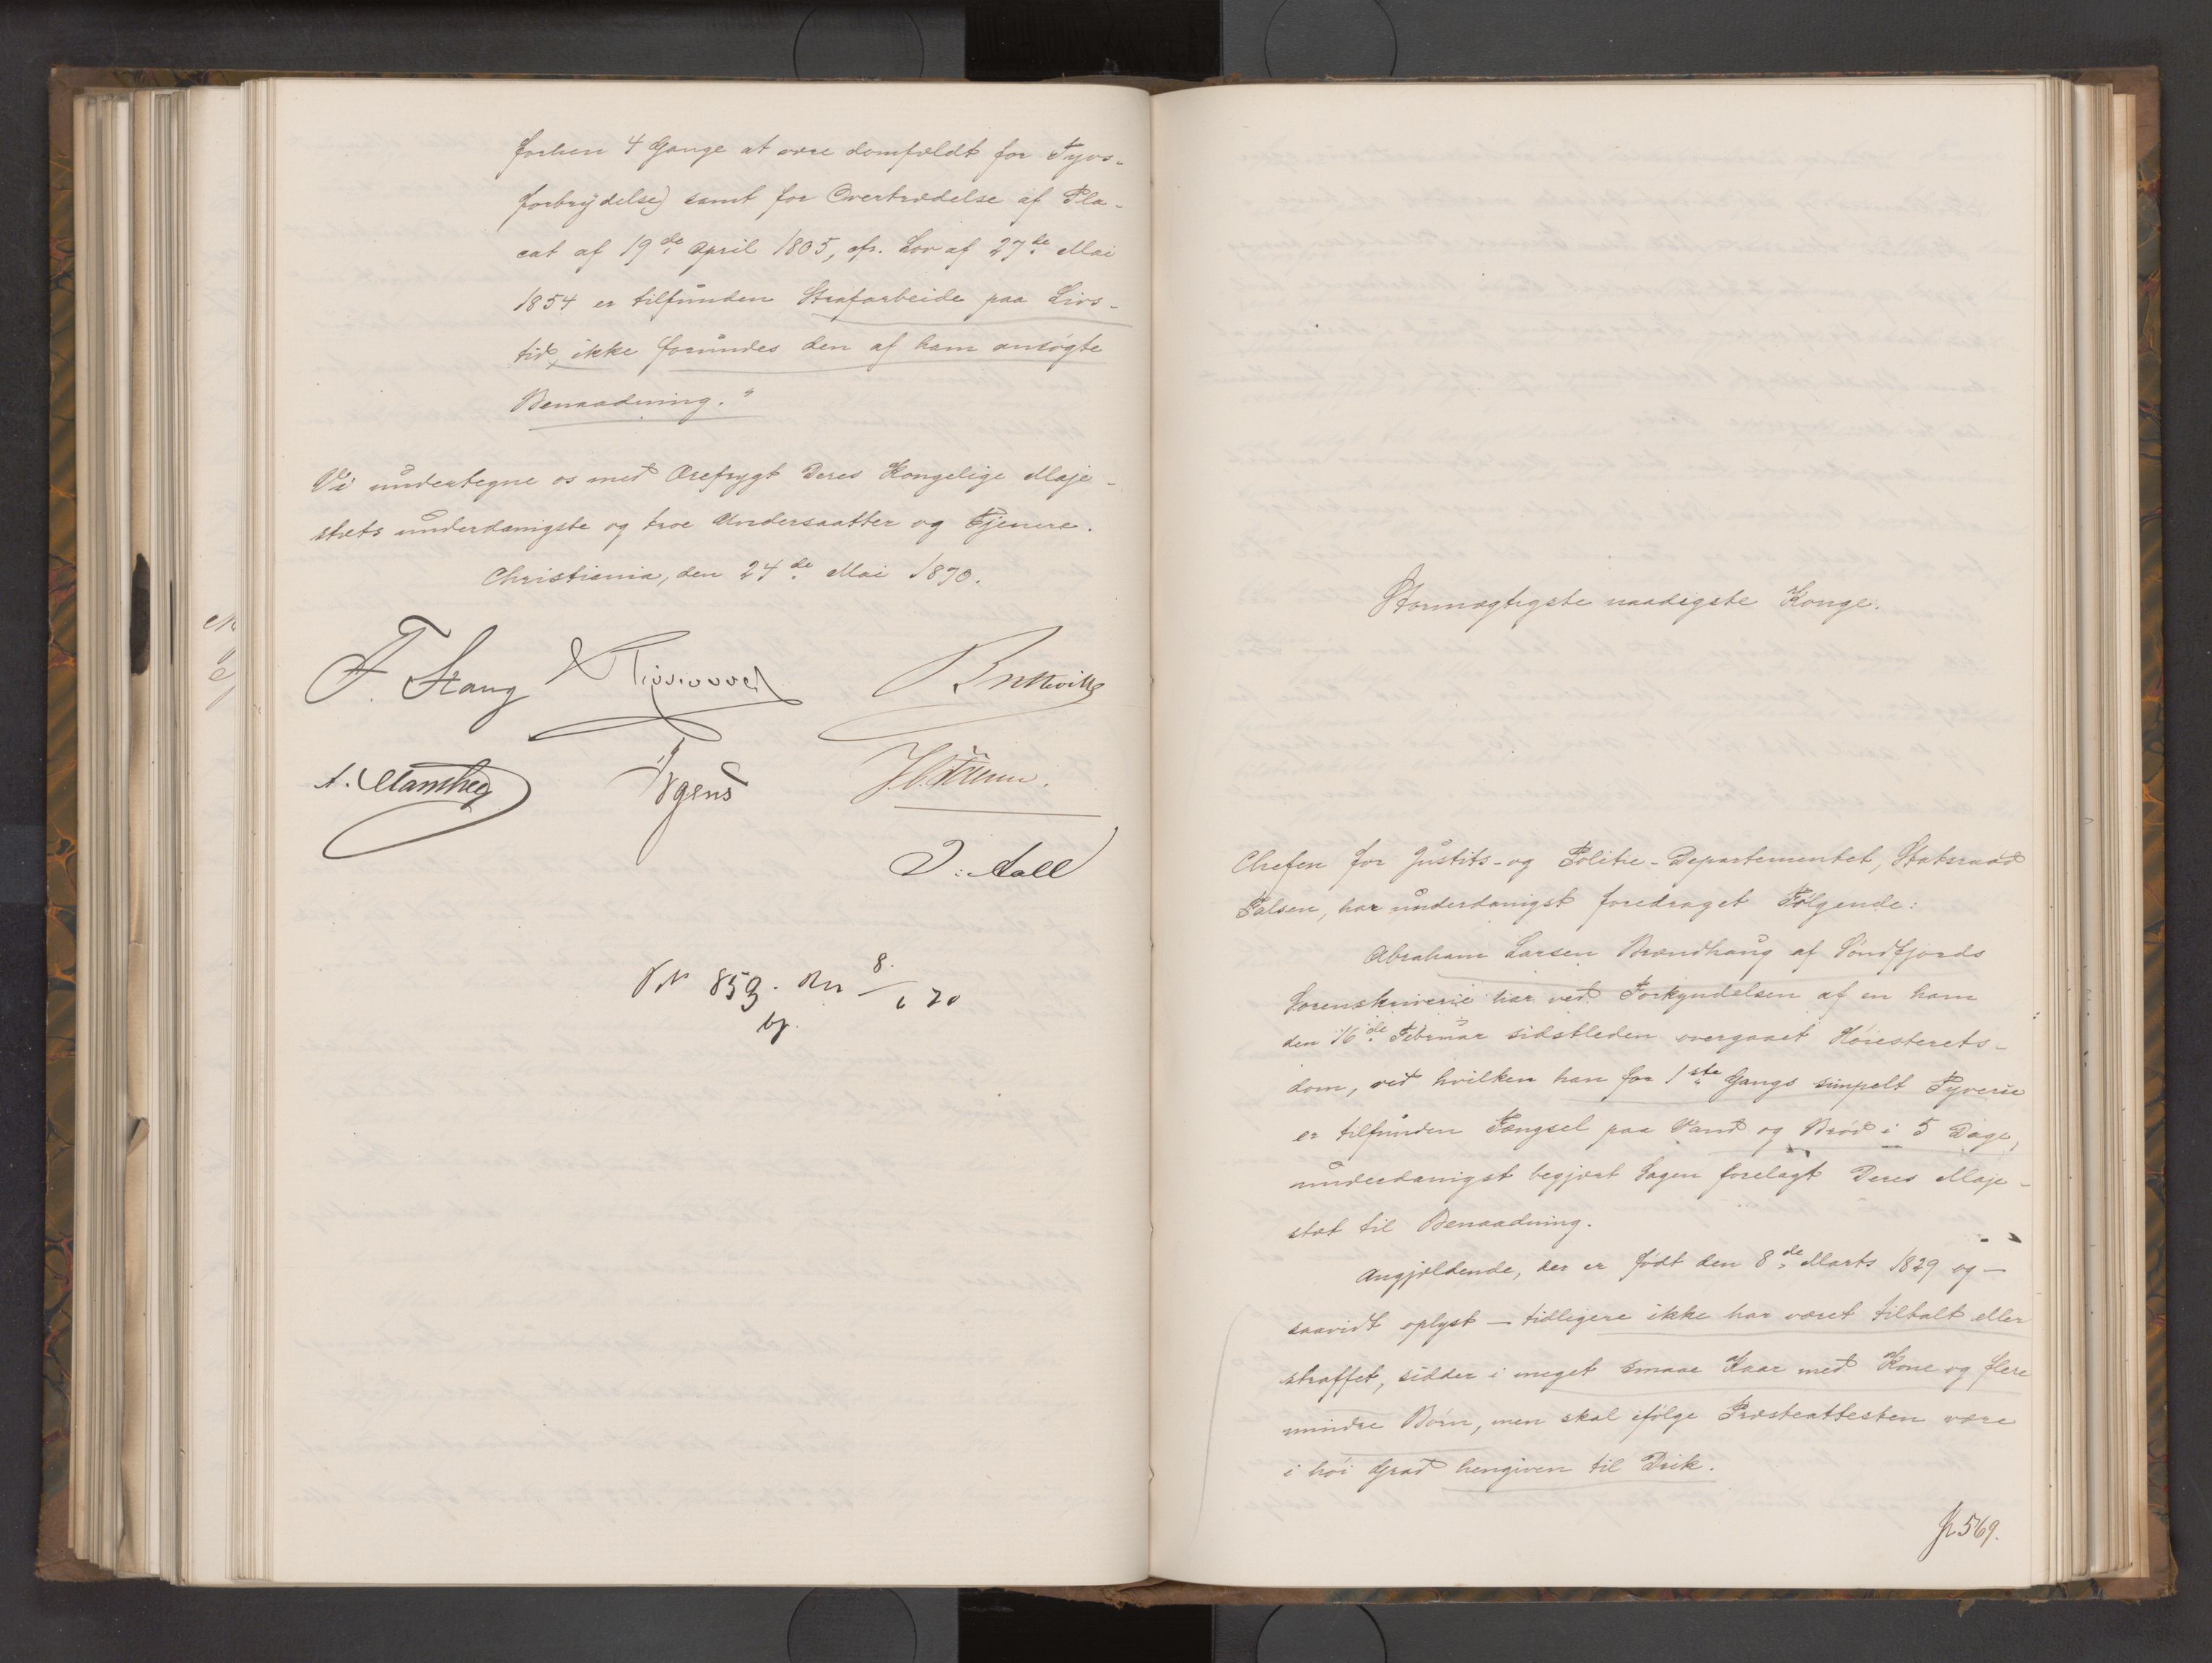 forhen 4 Gange at være domfældt for Tyvs-
forbrydelse) samt for Overtrædelse af Pla-
cat af 19de April 1805, cfr. Lov af 27de Mai
1854 er tilfunden Strafarbeide paa Livs-
tid, ikke forundes den af ham ansøgte
Benaadning."
Vi undertegne os med Ærefrygt Deres Kongelige Maje-
stæts underdanigste og troe Undersaatter og Tjenere.
Christiania, den 24de Mai 1870.
F. Stang
Bretteville
A. Manthey
Irgens
J. Aall
No 859. 8/6 70
Stormægtigste naadigste Konge.
Chefen for Justits- og Politie-Departementet, Statsraad
Falsen, har underdanigst foredraget Følgende:
Abraham Larsen Brændhaug af Søndfjords
Sorenskriverie har ved Forkyndelsen af en ham
den 16de Februar sidstleden overgaaet Høiesterets-
dom, ved hvilken han for 1ste Gangs simpelt Tyverie
er tilfunden Fængsel paa Vand og Brød i 5 Dage,
underdanigst begjært Sagen forelagt Deres Maje-
stæt til Benaadning.
Angjældende, der er født den 8de Marts 1829 og —
saavidt oplyst — tidligere ikke har været tiltalt eller
straffet, sidder i meget smaae Kaar med Kone og flere
mindre Børn, men skal ifølge Præsteattesten være
i høi Grad hengiven til Drik.
569.